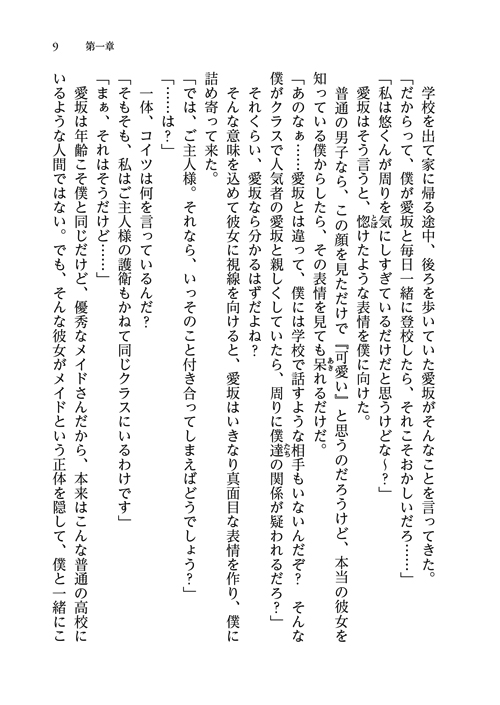 9　第一章
　学校を出て家に帰る途中、後ろを歩いていた愛坂がそんなことを言ってきた。
「だからって、僕が愛坂と毎日一緒に登校したら、それこそおかしいだろ……」
「私は悠くんが周りを気にしすぎているだけだと思うけどな～？」
　愛坂はそう言うと、惚けたような表情を僕に向けた。
　普通の男子なら、この顔を見ただけで『可愛い』と思うのだろうけど、本当の彼女を
知っている僕からしたら、その表情を見ても呆れるだけだ。
「あのなぁ……愛坂とは違って、僕には学校で話すような相手もいないんだぞ？　そんな
僕がクラスで人気者の愛坂と親しくしていたら、周りに僕達の関係が疑われるだろ？」
　それくらい、愛坂なら分かるはずだよね？
　そんな意味を込めて彼女に視線を向けると、愛坂はいきなり真面目な表情を作り、僕に
詰め寄って来た。
「では、ご主人様。それなら、いっそのこと付き合ってしまえばどうでしょう？」
「……は？」
　一体、コイツは何を言っているんだ？
「そもそも、私はご主人様の護衛もかねて同じクラスにいるわけです」
「まぁ、それはそうだけど……」
　愛坂は年齢こそ僕と同じだけど、優秀なメイドさんだから、本来はこんな普通の高校に
いるような人間ではない。でも、そんな彼女がメイドという正体を隠して、僕と一緒にこ